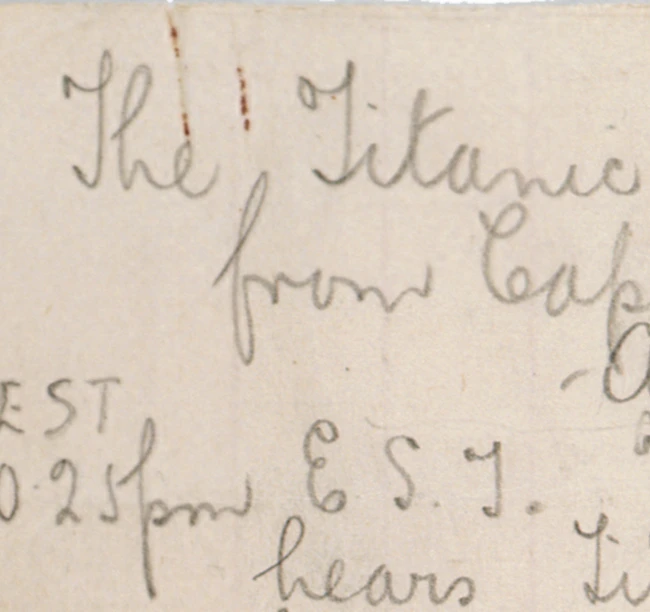 The Titanic
from Cap
EST
0.25pm E S. T.
hears Ti